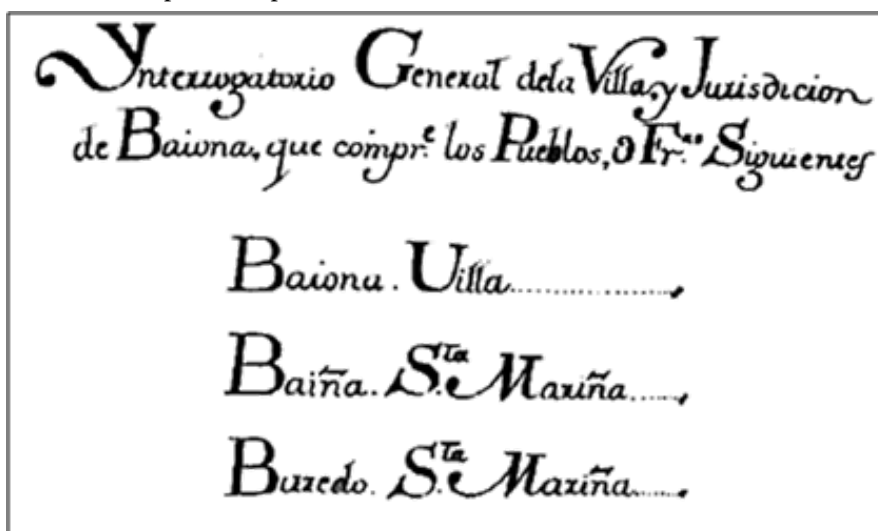 Ynterrogatorio General dela Villa, y Jurisdicion
de Baiona, que compr.e los Pueblos, ô Fr.as Siguientes
Baiona. Uilla................
Baiña. S.ta Mariña.....
Buredo. S.ta Mariña.....